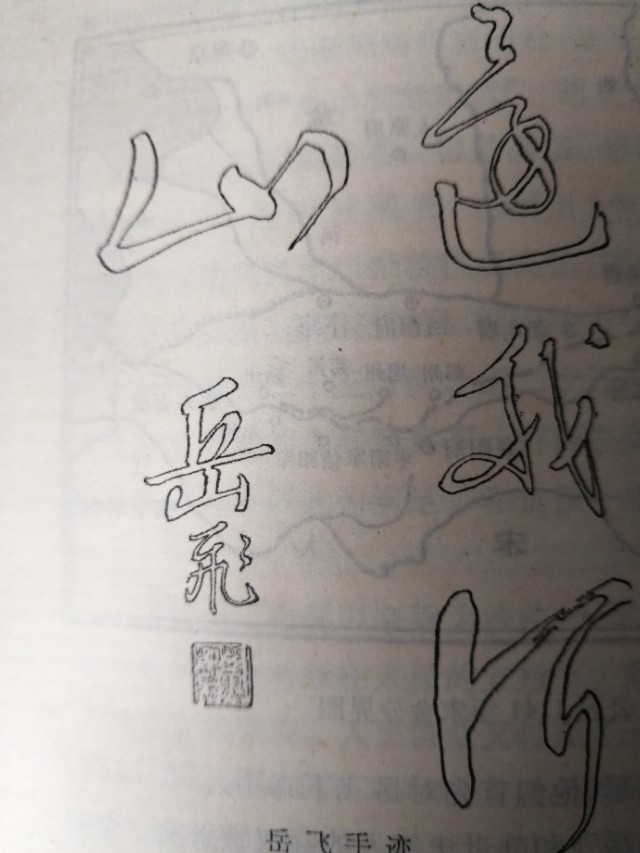 還我河
山
岳飛
岳飞手迹